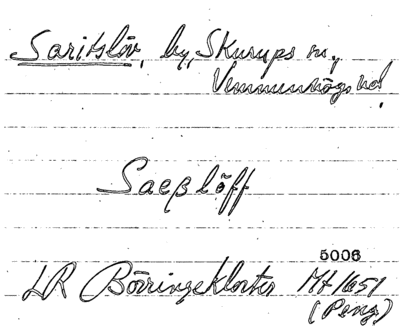 Saritslöv, by, Skurups sn.,
Vemmenhögs hd.
Saeβlöff
5006
LR Börringekloster Mt 1651
(Peng)